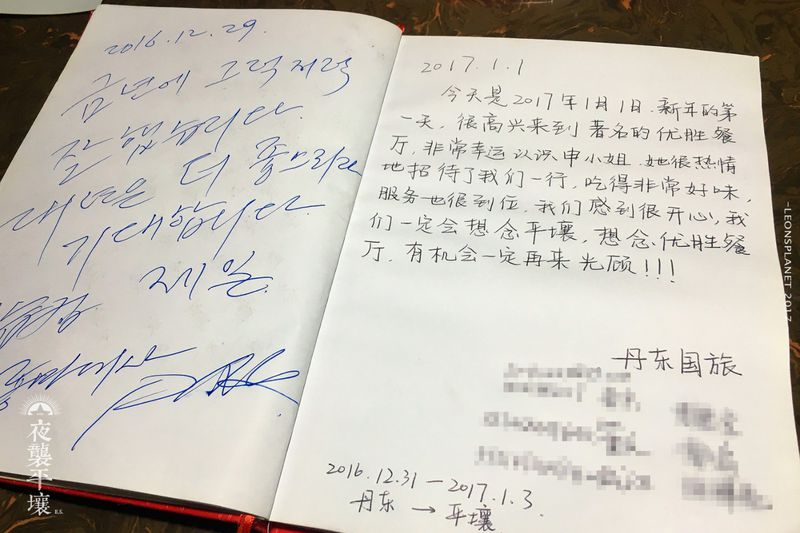 2016.12.29.
금년에 그럭저럭
잘 했습니다.
내년은 더 좋으리라
기대합니다.
제일
2017.1.1
今天是2017年1月1日.新年的第
一天，很高兴来到著名的优胜餐
厅，非常幸运认识申小姐.她很热情
地招待了我们一行，吃得非常好味，
服务也很到位.我们感到很开心，我
们一定会想念平壤，想念优胜餐
厅，有机会一定再来光顾！！！
丹东国旅
2016.12.31—2017.1.3.
丹东→平壤
夜襲平壤
-LEONSPLANET 2017